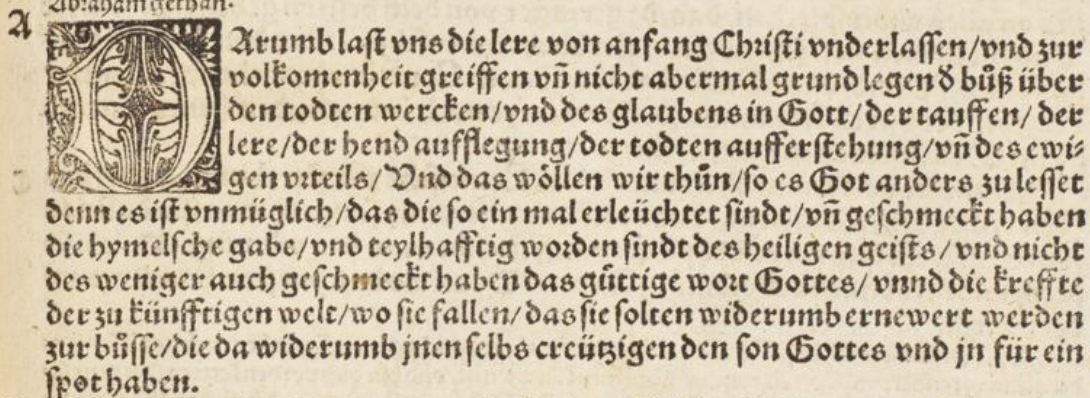 Abraham gethan.
A
DArumb last vns die lere von anfang Christi vnderlassen/vnd zur
volkomenheit greiffen vñ nicht abermal grund legen ď bůß über
den todten wercken/vnd des glaubens in Gott/der tauffen/der
lere/der hend aufflegung/der todten aufferstehung/vñ des ewi⸗
gen vrteils/Vnd das wöllen wir thůn/so es Got anders zu lesset
denn es ist vnmüglich/das die so ein mal erleüchtet sindt/vñ geschmeckt haben
die hymelsche gabe/vnd teylhafftig worden sindt des heiligen geists/vnd nicht
des weniger auch geschmeckt haben das gůttige wort Gottes/vnnd die kreffte
der zu künfftigen welt/wo sie fallen/das sie solten widerumb ernewert werden
zur bůsse/die da widerumb jnen selbs creützigen den son Gottes vnd jn für ein
spot haben.